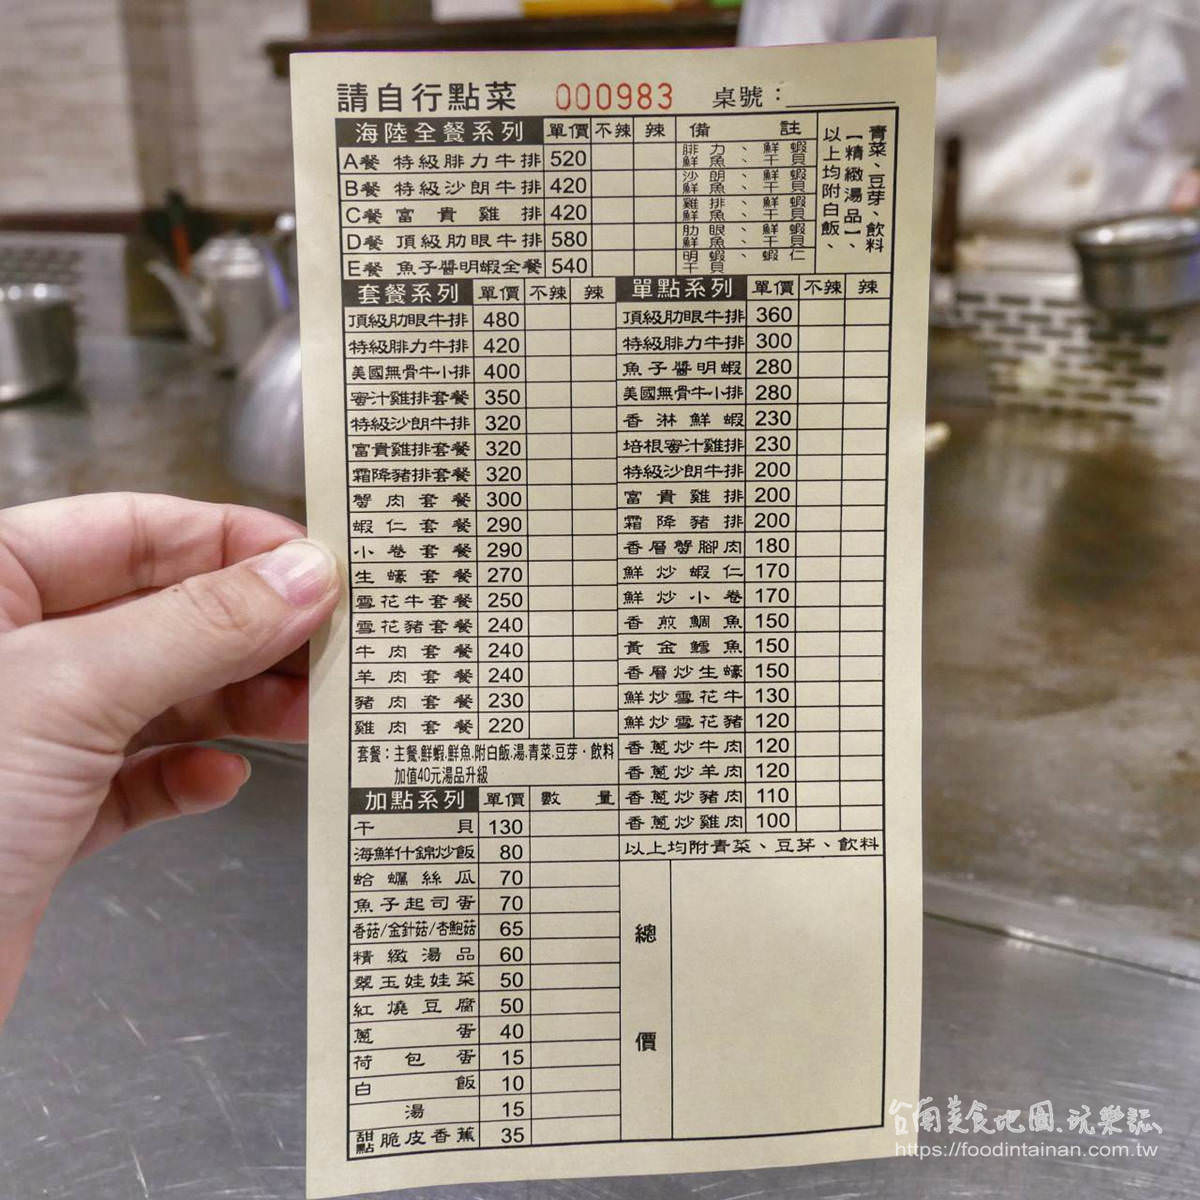 請自行點菜 000983 桌號：
海陸全餐系列 單價 不辣 辣 備註
A餐 特級腓力牛排 520 腓力、鮮蝦 鮮魚、干貝
B餐 特級沙朗牛排 420 沙朗、鮮蝦 鮮魚、干貝
C餐 富貴雞排 420 雞排、鮮蝦 鮮魚、干貝
D餐 頂級肋眼牛排 580 肋眼、鮮蝦 鮮魚、干貝
E餐 魚子醬明蝦全餐 540 明蝦、蝦仁 干貝
以上均附白飯、
【精緻湯品】、
青菜、豆芽、飲料
套餐系列 單價 不辣 辣
頂級肋眼牛排 480
特級腓力牛排 420
美國無骨牛小排 400
蜜汁雞排套餐 350
特級沙朗牛排 320
富貴雞排套餐 320
霜降豬排套餐 320
蟹肉套餐 300
蝦仁套餐 290
小卷套餐 290
生蠔套餐 270
雪花牛套餐 250
雪花豬套餐 240
牛肉套餐 240
羊肉套餐 240
豬肉套餐 230
雞肉套餐 220
套餐：主餐.鮮蝦.鮮魚.附白飯.湯.青菜.豆芽．飲料
加值40元湯品升級
加點系列 單價 數量
干貝 130
海鮮什錦炒飯 80
蛤蠣絲瓜 70
魚子起司蛋 70
香菇/金針菇/杏鮑菇 65
精緻湯品 60
翠玉娃娃菜 50
紅燒豆腐 50
蔥蛋 40
荷包蛋 15
白飯 10
湯 15
甜點 脆皮香蕉 35
單點系列 單價 不辣 辣
頂級肋眼牛排 360
特級腓力牛排 300
魚子醬明蝦 280
美國無骨牛小排 280
香淋鮮蝦 230
培根蜜汁雞排 230
特級沙朗牛排 200
富貴雞排 200
霜降豬排 200
香層蟹腳肉 180
鮮炒蝦仁 170
鮮炒小卷 170
香煎鯛魚 150
黃金鱈魚 150
香層炒生蠔 150
鮮炒雪花牛 130
鮮炒雪花豬 120
香蔥炒牛肉 120
香蔥炒羊肉 120
香蔥炒豬肉 110
香蔥炒雞肉 100
以上均附青菜、豆芽、飲料
總價
台南美食地圖.玩樂誌
https://foodintainan.com.tw